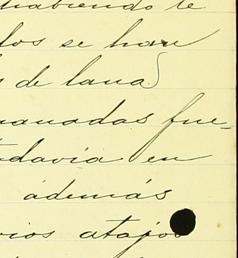 habiendo te
los se han
s de lana
nanadas fue-
todavia en
además
rios atajos